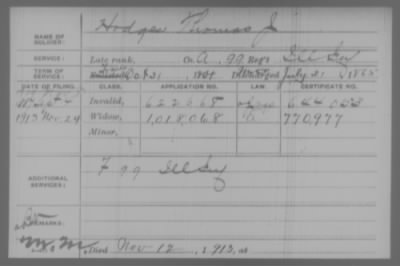 NAME OF SOLDIER: Hodges Thomas J
SERVICE: Late rank, Co. A, 99 Reg't Ill Inf
TERM OF SERVICE: Oct 31 186 , Discharged July 31, 1865
DATE OF FILING. CLASS. APPLICATION NO. LAW. CERTIFICATE NO.
Invalid, 622668 644053
1913 Nov. 24 Widow, 1,018,068 770,977
Minor,
ADDITIONAL SERVICES: F 99 Ill Inf
REMARKS:
Died Nov 12, 1913, at